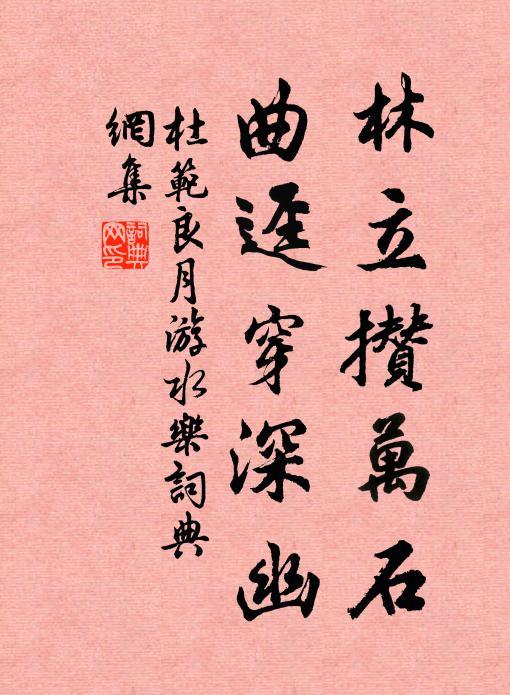 林立攢萬石
曲逕穿深幽
杜範良月游水樂詞典
網集
詞典網印